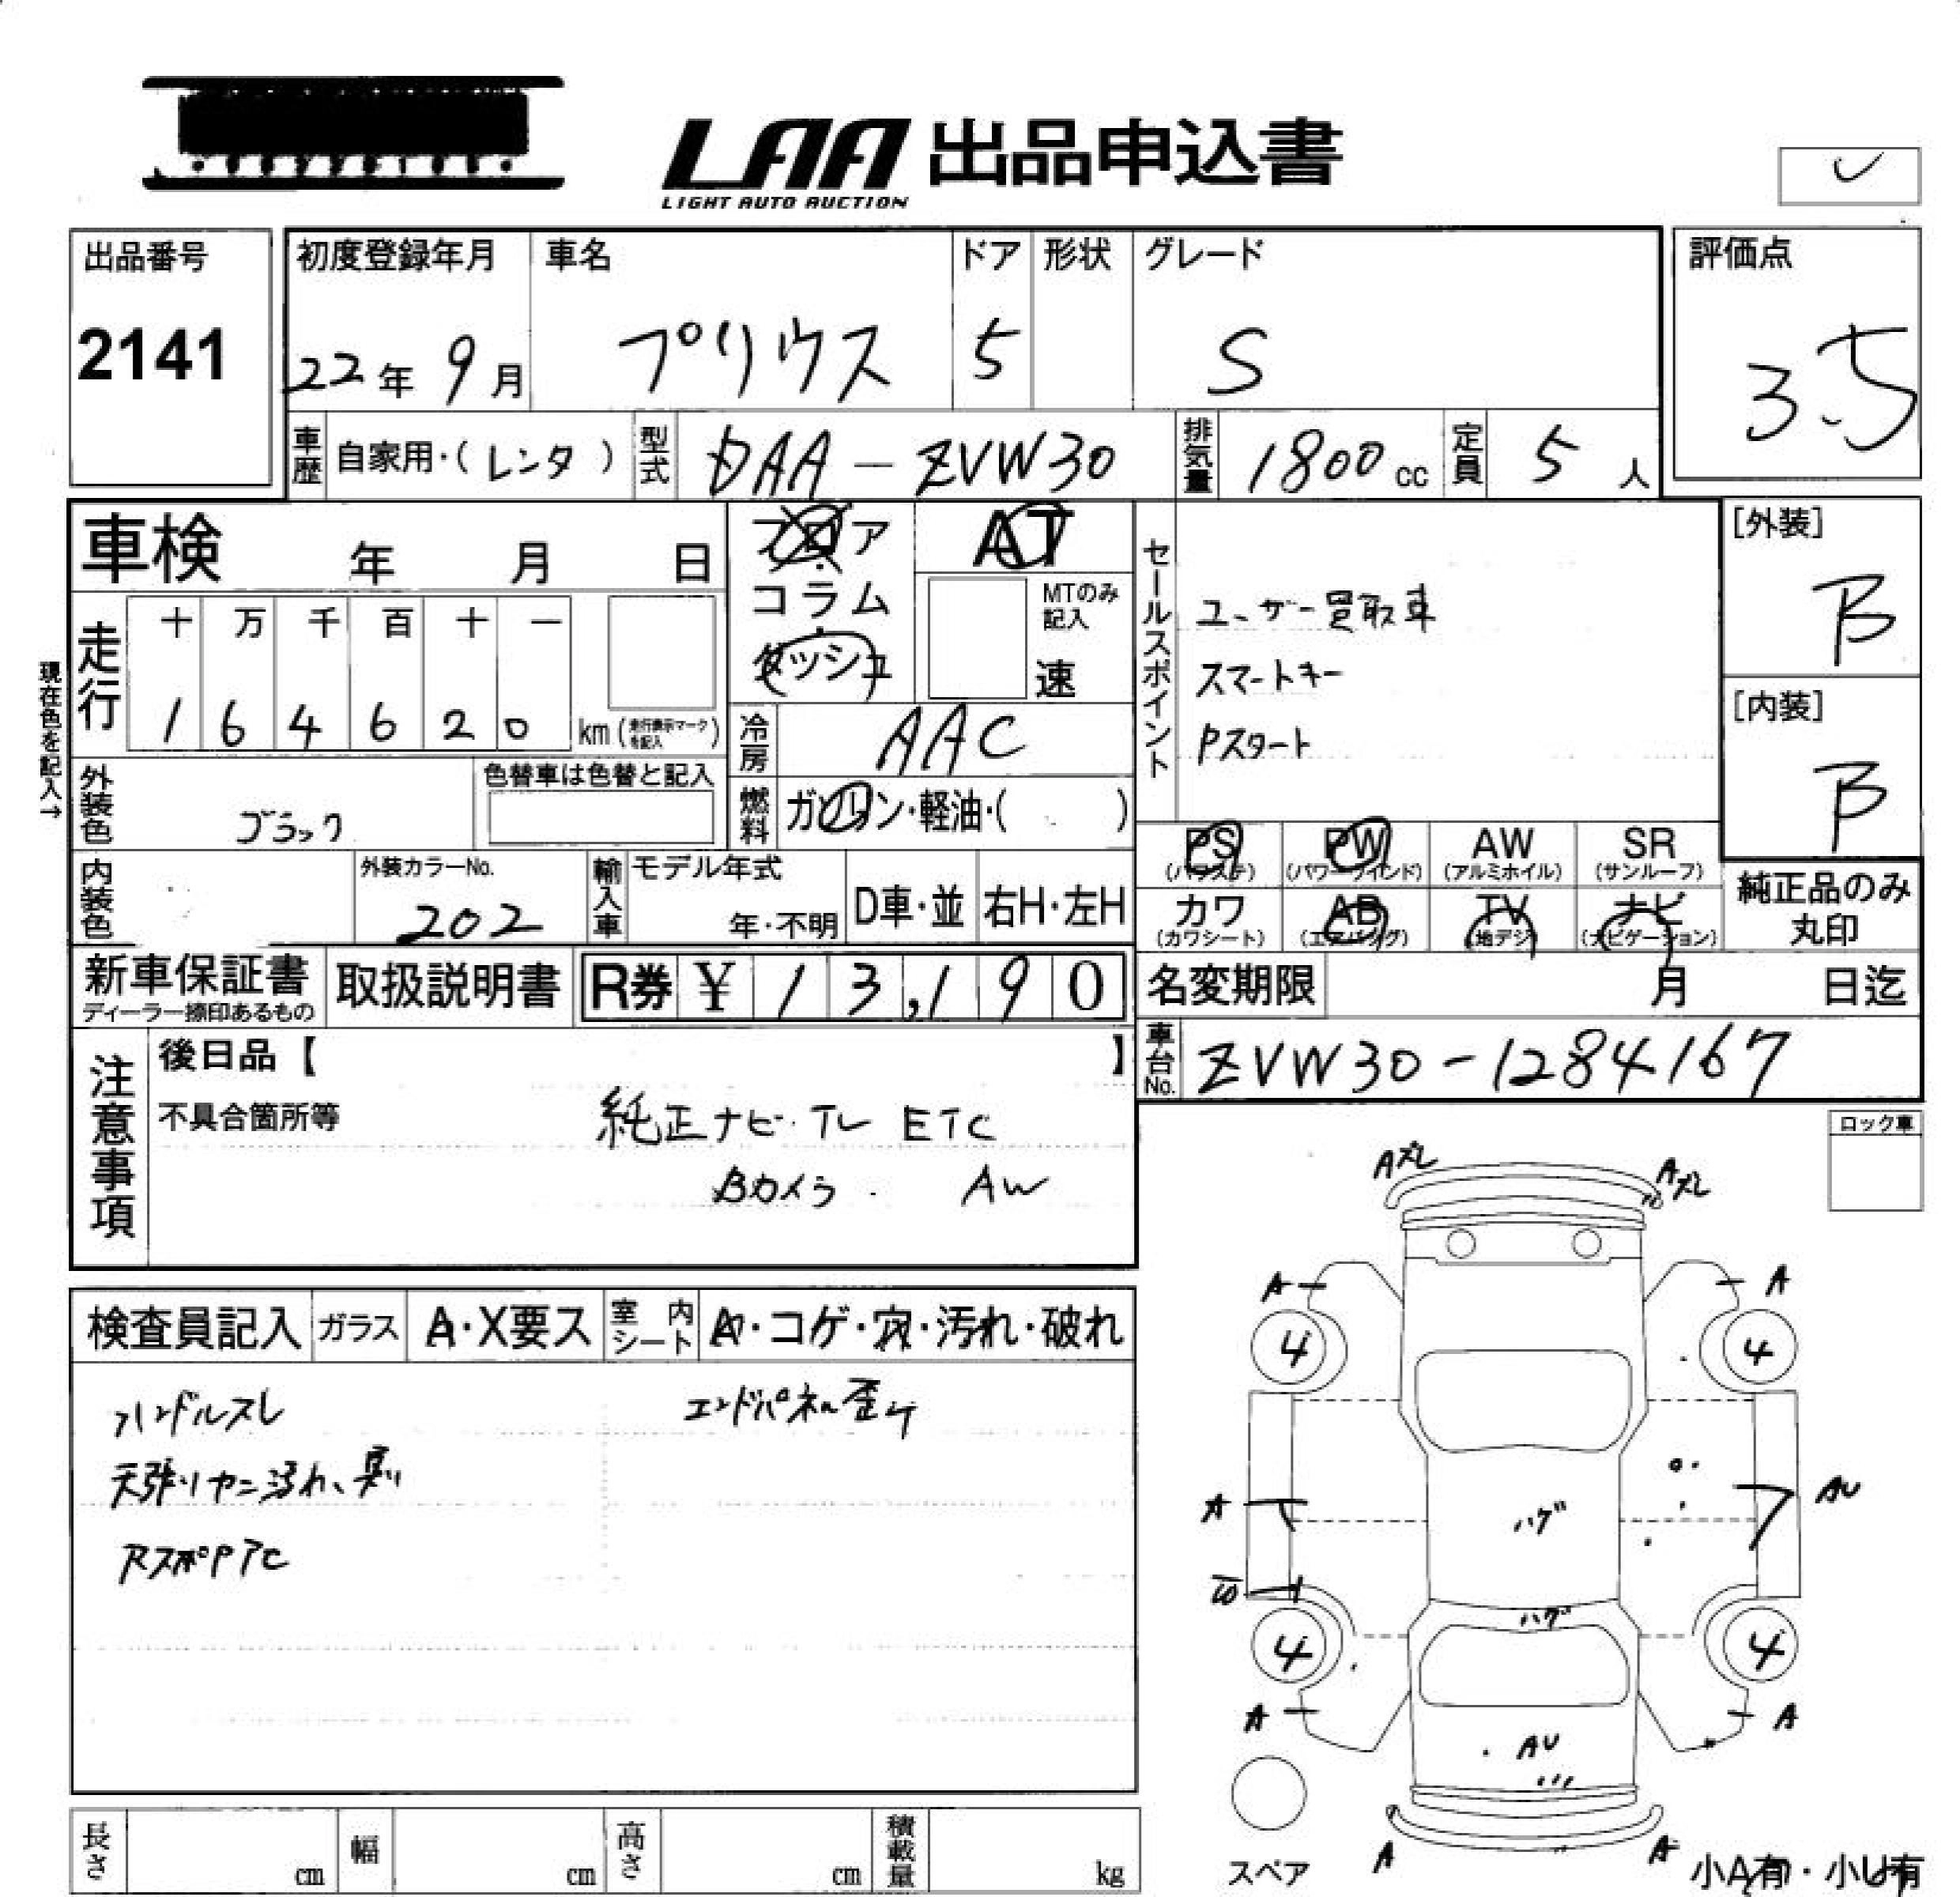 LAA 出品申込書
LIGHT AUTO AUCTION
出品番号
2141
初度登録年月
22年 9月
車名
プリウス
ドア
5
形状
グレード
S
評価点
3.5
車歴 自家用・( レンタ )
型式 DAA-ZVW30
排気量 1800 cc
定員 5 人
車検 年 月 日
フロア・コラム・ダッシュ
AT
MTのみ記入
速
現在色を記入→
走行
十 万 千 百 十 一
1 6 4 6 2 0 km (走行表示マークを記入)
冷房 AAC
燃料 ガソリン・軽油・( )
外装色 ブラック
色替車は色替と記入
内装色
外装カラーNo.
202
輸入車 モデル年式
年・不明
D車・並
右H・左H
セールスポイント
ユーザー買取車
スマートキー
Pスタート
[外装]
B
[内装]
B
PS (パワステ)
PW (パワーウインド)
AW (アルミホイル)
SR (サンルーフ)
カワ (カワシート)
AB (エアバッグ)
TV (地デジ)
ナビ (ナビゲーション)
純正品のみ丸印
新車保証書
ディーラー捺印あるもの
取扱説明書
R券 ¥ 13,190
名変期限 月 日迄
車台No. ZVW30-1284167
注意事項
後日品【 】
不具合箇所等
純正ナビ・TV ETC
Bカメラ AW
ロック車
検査員記入
ガラス A・X要ス
室内シート A・コゲ・穴・汚れ・破れ
ハンドルスレ
エンドパネル歪み
天張りヤニ汚れ、臭い
Aズレ
Aズレ
A
A
4
4
A
AU
ハゲ
ハゲ
4
4
A
A
AU
A
A
スペア
小A有・小U有
長さ cm
幅 cm
高さ cm
積載量 kg